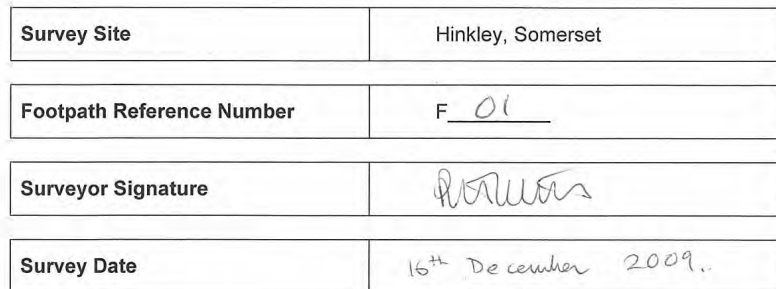 Survey Site Hinkley, Somerset
Footpath Reference Number F 01
Surveyor Signature
Survey Date 16th December 2009.